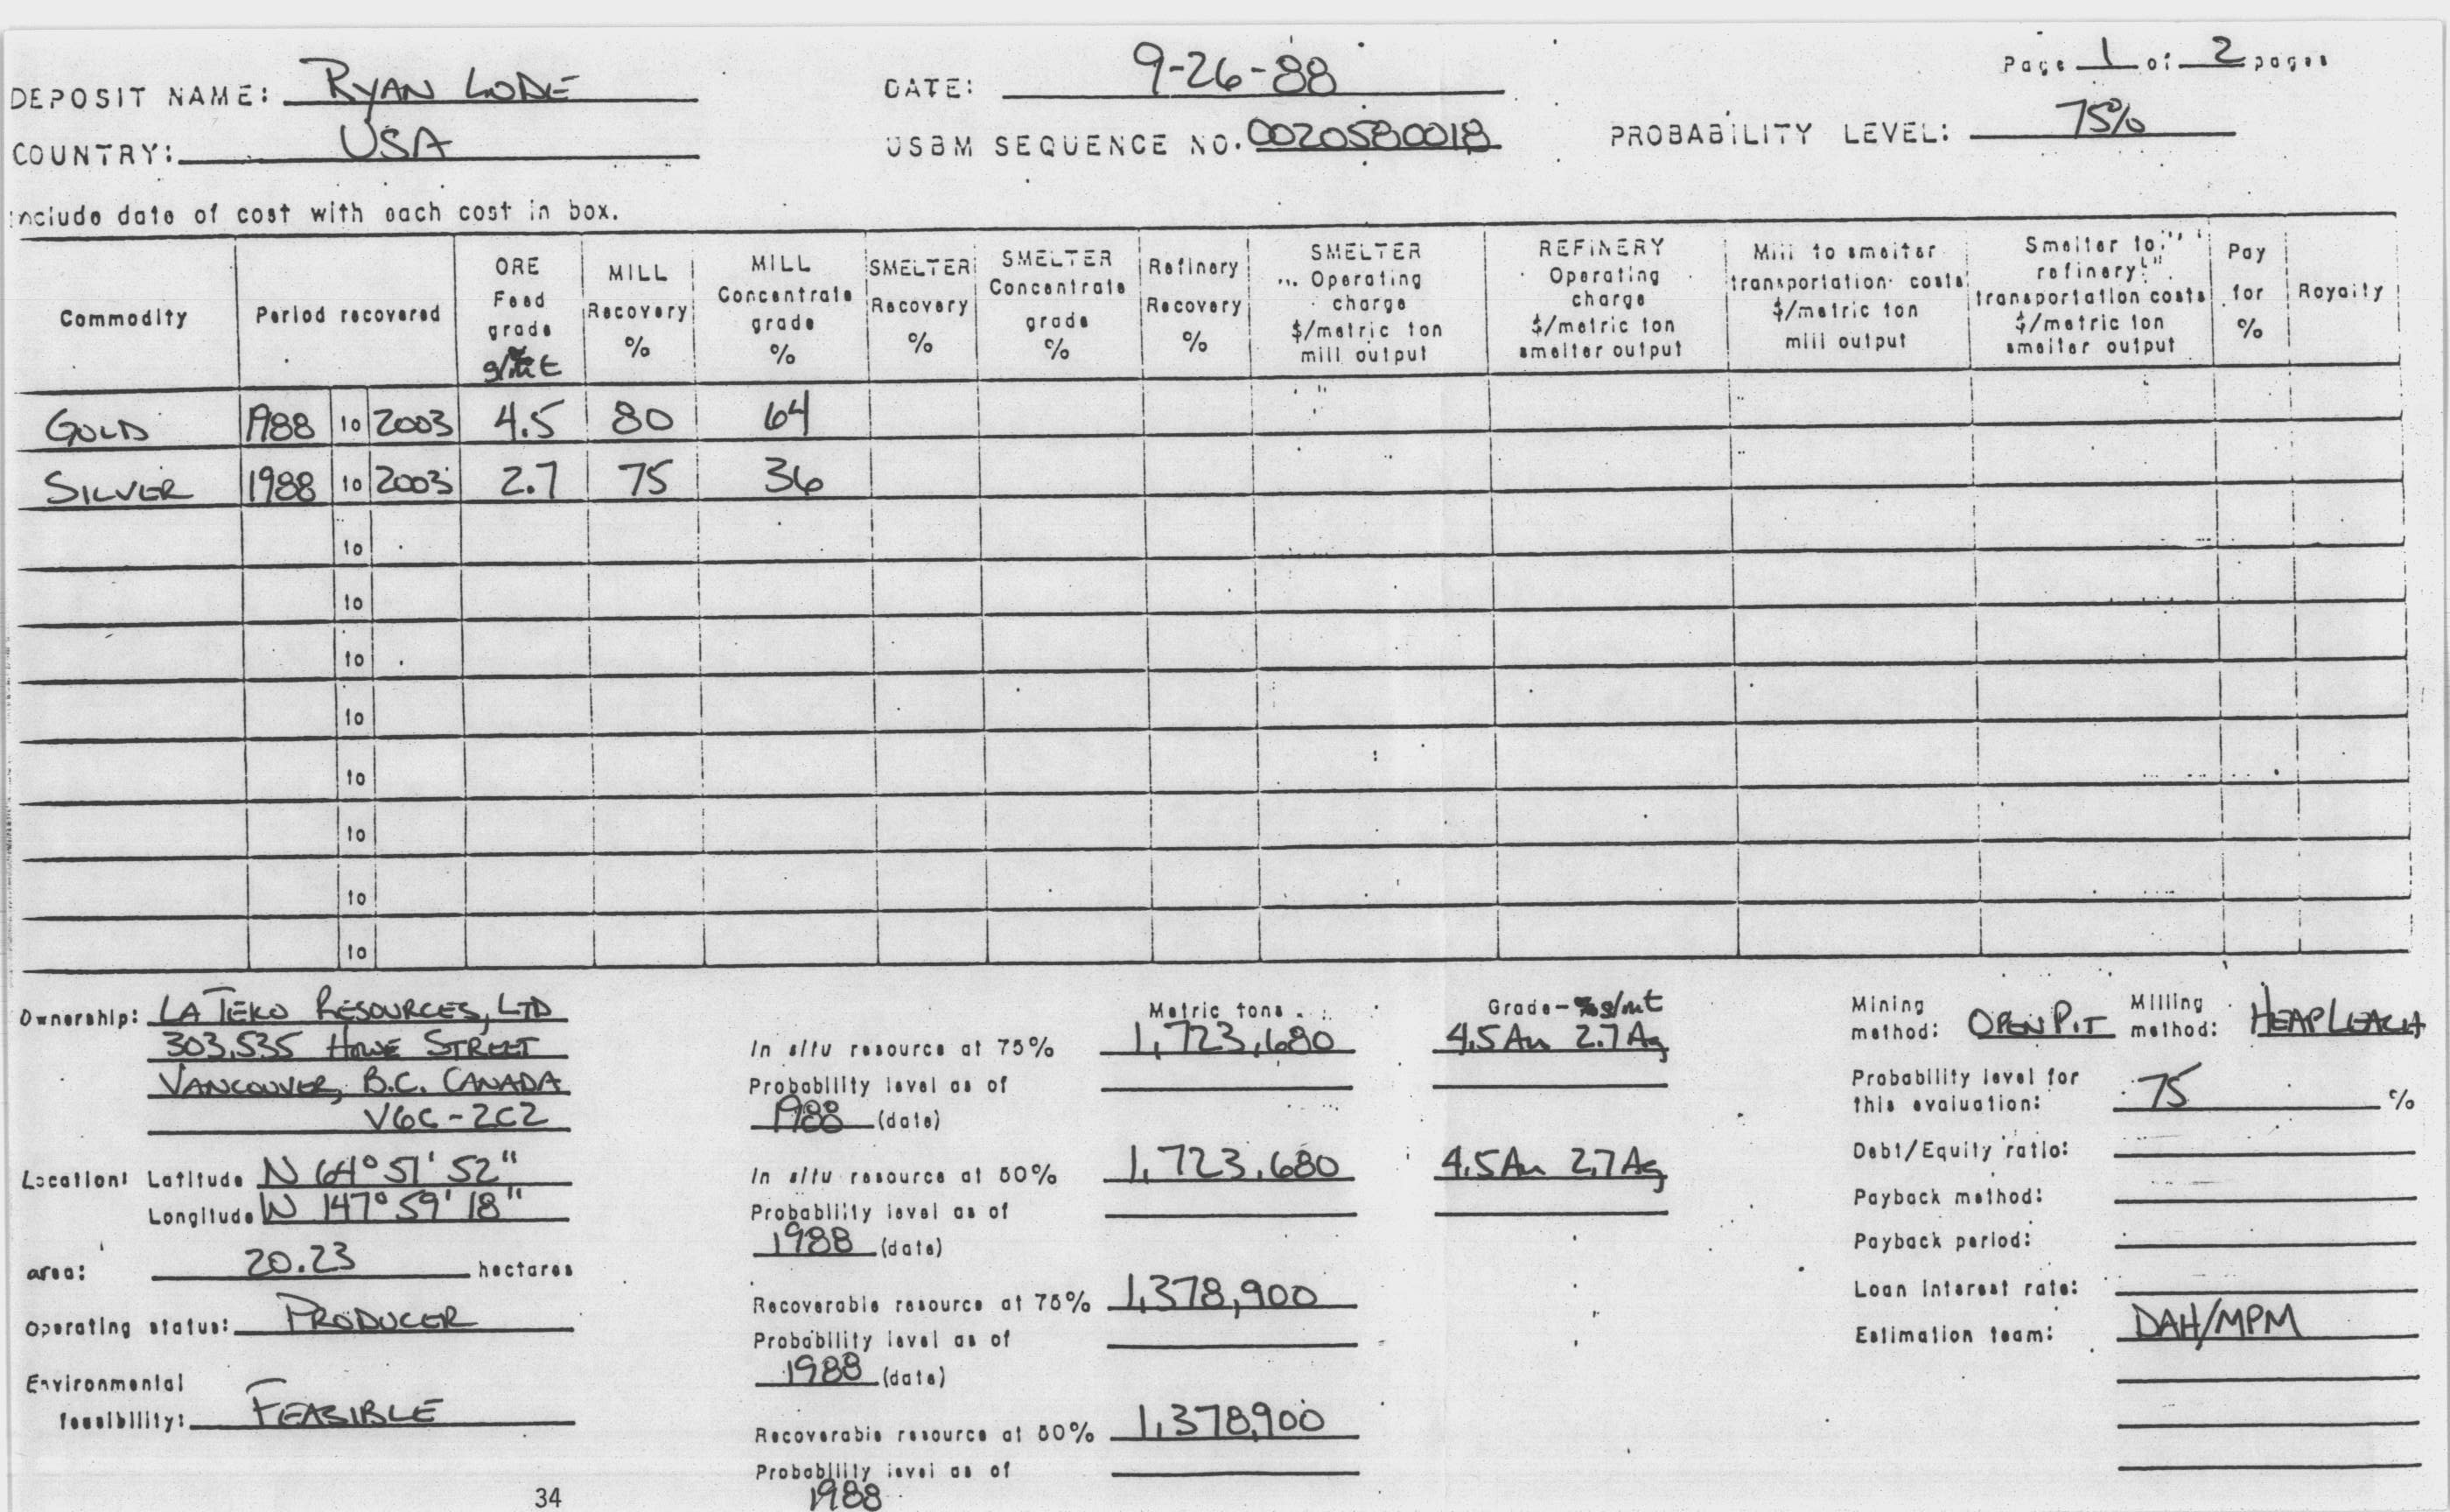 Page 1 of 2 pages
DEPOSIT NAME: RYAN LODE DATE: 9-26-88
COUNTRY: USA USBM SEQUENCE NO. 0020580018 PROBABILITY LEVEL: 75%
Include date of cost with each cost in box.
Commodity
Period recovered
ORE Feed grade g/mt
MILL Recovery %
MILL Concentrate grade %
SMELTER Recovery %
SMELTER Concentrate grade %
Refinery Recovery %
SMELTER Operating charge $/metric ton mill output
REFINERY Operating charge $/metric ton smelter output
Mill to smelter transportation costs $/metric ton mill output
Smelter to refinery transportation costs $/metric ton smelter output
Pay for %
Royalty
GOLD 1988 to 2003 4.5 80 64
SILVER 1988 to 2003 2.7 75 36
to
to
to
to
to
to
to
to
Ownership: LA TEKO RESOURCES, LTD
303,535 HOWE STREET
VANCOUVER, B.C. CANADA
V6C-2C2
Location: Latitude N 64° 51' 52"
Longitude W 147° 59' 18"
area: 20.23 hectares
Operating status: PRODUCER
Environmental
feasibility: FEASIBLE
Metric tons Grade-% g/mt
In situ resource at 75% 1,723,680 4.5Au 2.7Ag
Probability level as of
1988 (date)
In situ resource at 50% 1,723,680 4.5Au 2.7Ag
Probability level as of
1988 (date)
Recoverable resource at 75% 1,378,900
Probability level as of
1988 (date)
Recoverable resource at 50% 1,378,900
Probability level as of
1988
Mining method: OPEN PIT Milling method: HEAP LEACH
Probability level for
this evaluation: 75 %
Debt/Equity ratio:
Payback method:
Payback period:
Loan interest rate:
Estimation team: DAH/MPM
34